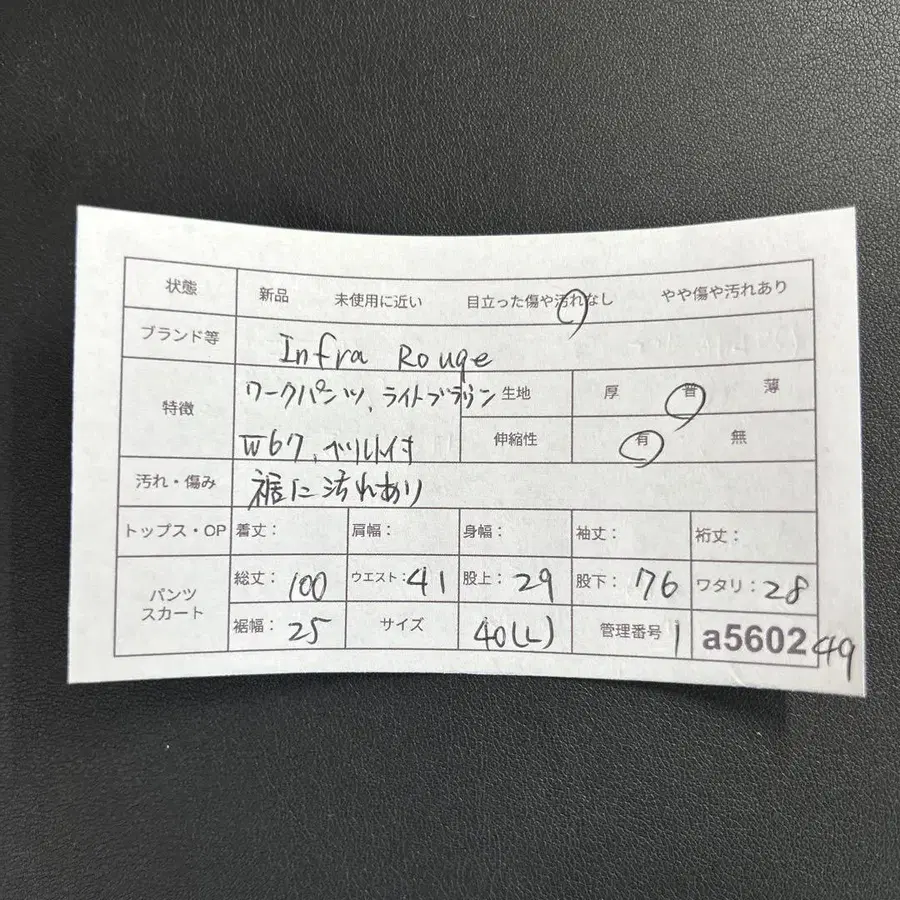 状態 新品 未使用に近い 目立った傷や汚れなし やや傷や汚れあり
ブランド等 Infra Rouge
特徴 ワークパンツ、ライトブラウン 生地 厚 普 薄
W67、ベルト付 伸縮性 有 無
汚れ・傷み 裾に汚れあり
トップス・OP 着丈: 肩幅: 身幅: 袖丈: 裄丈:
パンツ スカート 総丈: 100 ウエスト: 41 股上: 29 股下: 76 ワタリ: 28
裾幅: 25 サイズ 40(L) 管理番号 1 a5602 49